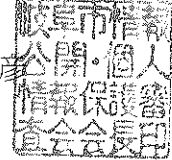 岐阜市情報
公開・個人
情報保護審
査会会長印
彦